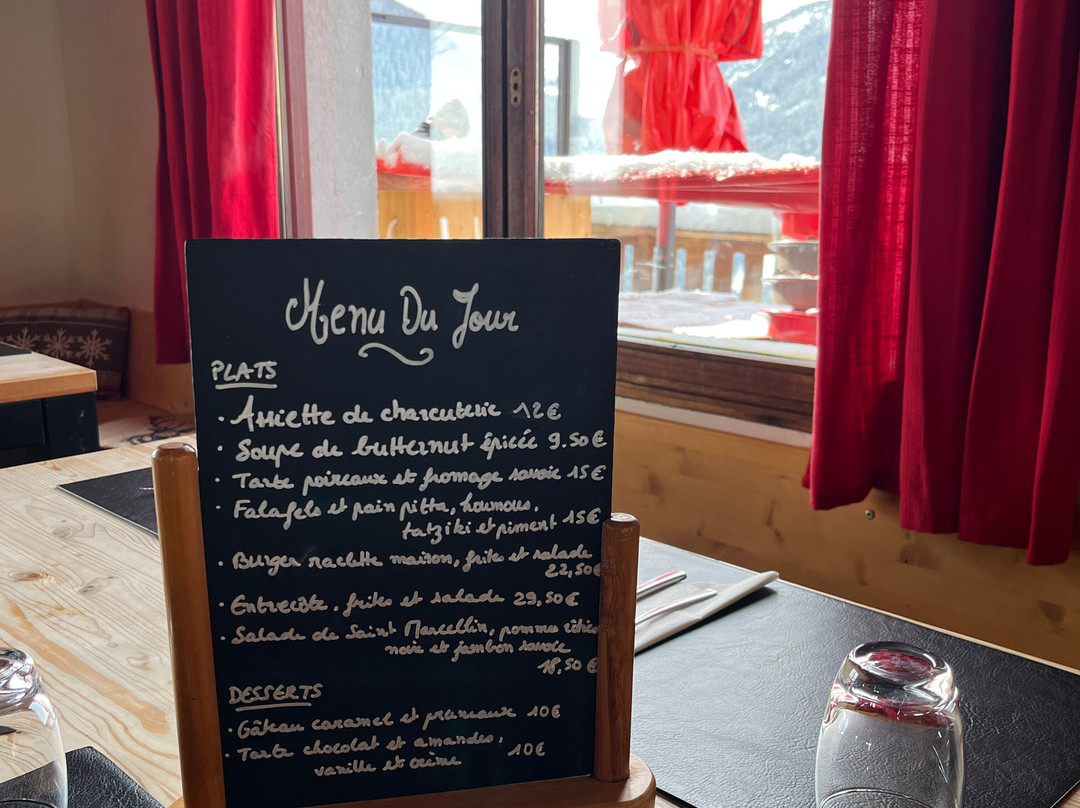 Menu Du Jour
PLATS
· Assiette de charcuterie 12€
· Soupe de butternut épicée 9.50€
· Tarte poireaux et fromage savoie 15€
· Falafels et pain pitta, houmous,
tatziki et piment 15€
· Burger raclette maison, frite et salade
22,50€
· Entrecôte, frites et salade 29,50€
· Salade de Saint Marcellin, pommes rôties
noix et jambon savoie
18,50€
DESSERTS
· Gâteau caramel et pruneaux 10€
· Tarte chocolat et amandes, 10€
vanille et crème